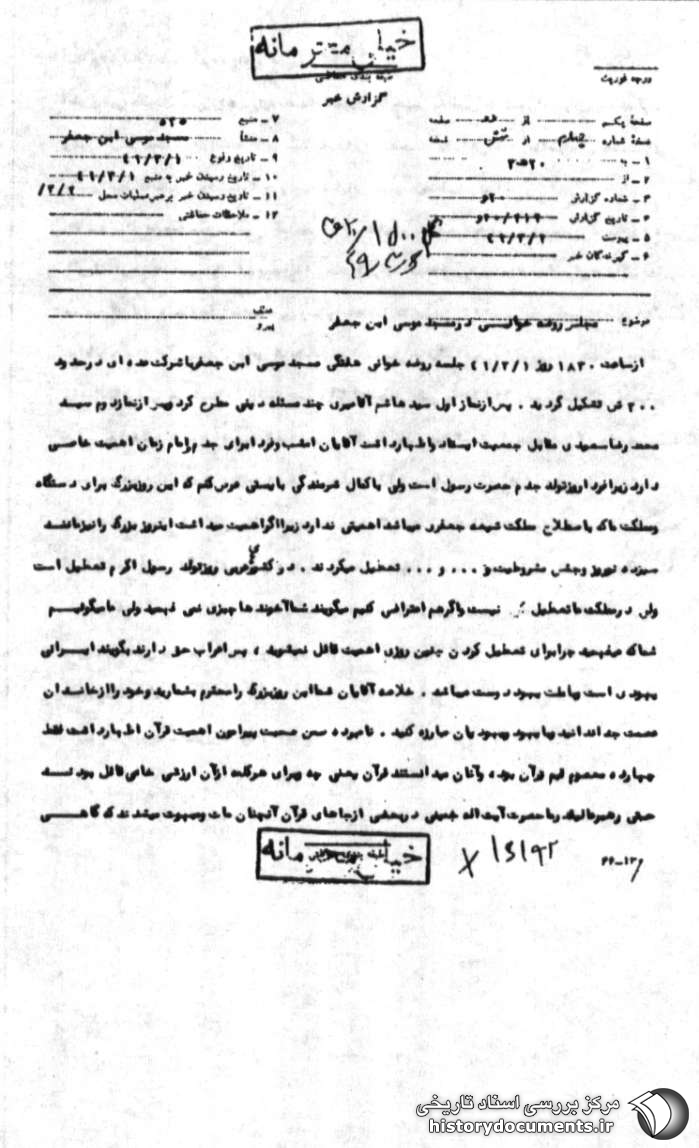 خیلی محرمانه
طبقه بندی حفاظتی
درجه فوریت
گزارش خبر
صفحه یکم از دو صفحه
نسخه شماره چهارم از شش نسخه
۱ – به
۲ – از
۳ – شماره گزارش
۴ – تاریخ گزارش
۵ – پیوست
۶ – گیرندگان خبر
۷ – منبع ۵۲۵
۸ – منشأ مسجد موسی ابن جعفر
۹ – تاریخ وقوع
۱۰ – تاریخ رسیدن خبر به منبع
۱۱ – تاریخ رسیدن خبر برهبر عملیات محل
۱۲ – ملاحظات حفاظتی
موضوع مجلس روضه خوانی در مسجد موسی ابن جعفر
عطف
پیرو
از ساعت ۱۸۳۰ روز جلسه روضه خوانی هفتگی مسجد موسی ابن جعفر با شرکت عده ای در حدود
۲۰۰ نفر تشکیل گردید . پس از نماز اول سید هاشم آقامیری چند مسئله دینی مطرح کرد و پس از نماز دوم سید
محمد رضا سعیدی مقابل جمعیت ایستاد و اظهار داشت آقایان امشب و فردا برای جدم و امام زمان اهمیت خاصی
دارد زیرا فردا روز تولد جدم حضرت رسول است ولی با کمال شرمندگی بایستی عرض کنم که این روز بزرگ برای دستگاه
و مملکت ما که باصطلاح مملکت شیعه جعفری میباشد اهمیتی ندارد زیرا اگر اهمیت میداشت اینروز بزرگ را نیز مانند
سیزده نوروز و جشن مشروطیت و ... و ... تعطیل میکردند . در کشورهای عربی روز تولد رسول اکرم تعطیل است
ولی در مملکت ما تعطیل نیست و اگر هم اعتراض کنیم میگویند شما آخوندها چیزی نمی فهمید ولی ما میگوئیم
شما که میفهمید چرا برای تعطیل کردن چنین روزی اهمیت قائل نمیشوید ، پس اعراب حق دارند بگویند ایرانی
یهودی است و با ملت یهود دوست میباشد . خلاصه آقایان شما این روز بزرگ را محترم بشمارید و خود را از خاندان
عصمت جدا ندانید و با یهود و یهودیان مبارزه کنید . نامبرده ضمن صحبت پیرامون اهمیت قرآن اظهار داشت فقط
چهارده معصوم قیم قرآن بوده و آنان میدانستند قرآن یعنی چه و برای هر کلمه از آن ارزشی خاص قائل بودند
حتی رهبر عالیقدر ما حضرت آیت اله خمینی در بعضی از جاهای قرآن آنچنان مات و مبهوت میشدند که گاهی
خیلی محرمانه
۱۶۱۹۲
۶۶-۱۲
مرکز بررسی اسناد تاریخی
historydocuments.ir